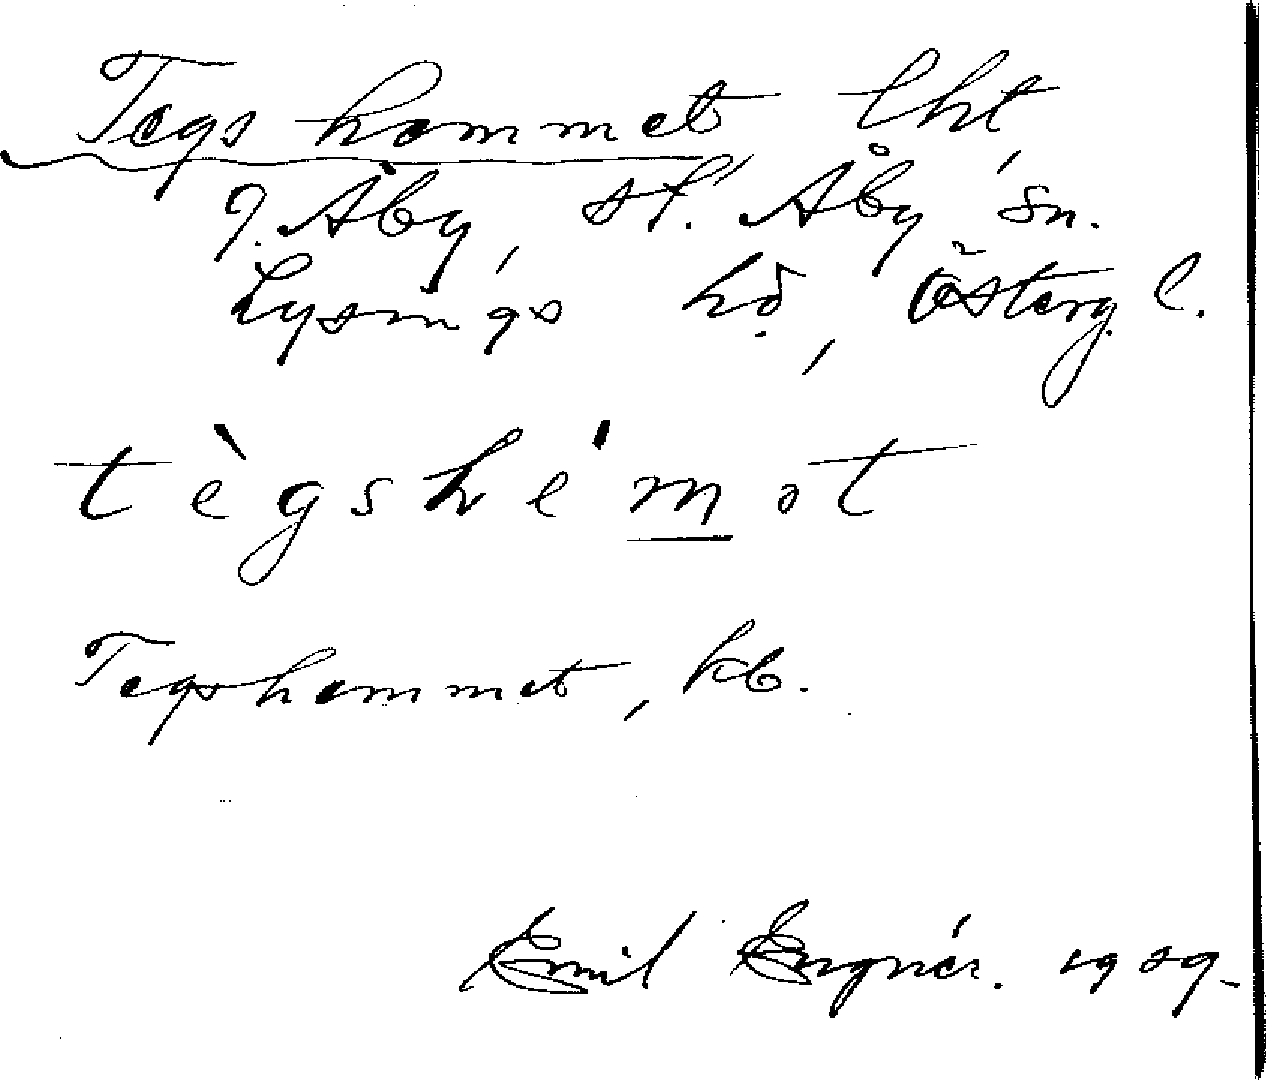 Tegshemmet lht,
g. Åby, st. Åby sn.
Lysings hd, Österg. l.
tègshémət
Tegshemmet, kb.
Emil Engnér. 1929